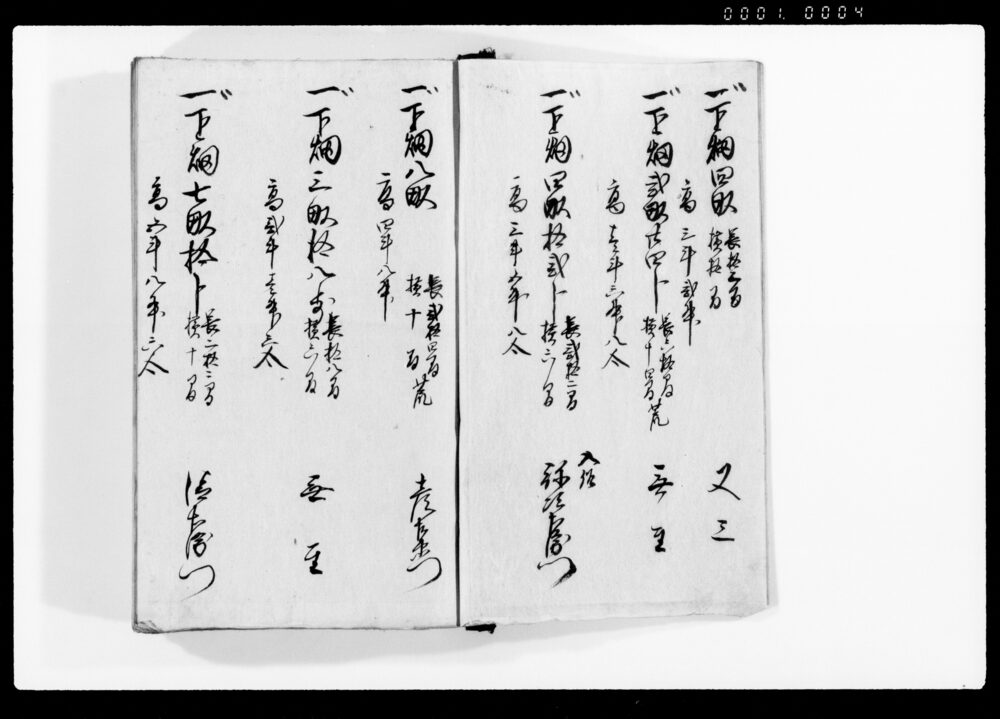 一下畑四畝 長拾二間
横拾間
高三斗弐升
又三
一下畑弐畝廿四卜 長六間
横十四間 荒
高壱斗六升八合
無主
一下畑四畝拾弐卜 長弐拾二間
横六間
高三斗五升八合
入作
弥次右衛門
一下畑八畝 長弐拾四間
横十間 荒
高四斗八升
彦左衛門
一下畑三畝拾八卜 長拾八間
横六間
高弐斗壱升六合
無主
一下畑七畝拾卜 長二拾二間
横十間
高五斗八升六合
清右衛門
0001. 0004